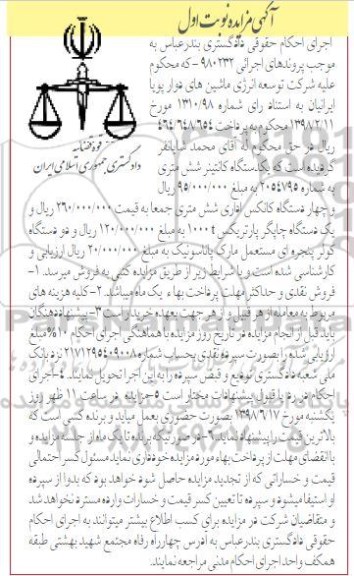 آگهی مزایده نوبت اول
اجرای احکام حقوقی دادگستری بندرعباس به
موجب پروندهای اجرائی ۹۸۰۲۳۲-که محکوم
علیه شرکت توسعه انرژی ماشین های دوار پویا
ایرانیان به استناد رای شماره ۱۳۱۰/۹۸ مورخ
۱۳۹۸/۲/۱۱ محکوم به پرداخت ۴۶۴/۶۴۸/۶۵۴
ریال در حق محکوم له آقای محمد شایانفر
گردیده است که یکدستگاه کانتینر شش متری
به شماره ۲۰۵۴۷۹۵ به مبلغ ۹۵/۰۰۰/۰۰۰ ریال
قوه قضائیه
دادگستری جمهوری اسلامی ایران
و چهار دستگاه کانکس اداری شش متری جمعا به قیمت ۲۶۰/۰۰۰/۰۰۰ ریال و
یک دستگاه چاپگر پارتریکس ۱۰۰۰t به مبلغ ۱۲۰/۰۰۰/۰۰۰ ریال و دو دستگاه
کولر پنجره ای مستعمل مارک پاناسونیک به مبلغ ۲۰/۰۰۰/۰۰۰ ریال ارزیابی و
کارشناسی شده است و با شرایط زیر از طریق مزایده کتبی به فروش میرسد. ۱-
فروش نقدی و حداکثر مهلت پرداخت بهاء یک ماه میباشد. ۲-کلیه هزینه های
مربوط به معامله از هر قبیل و از هر جهت بعهده خریدار است ۳-پیشنهاد دهندگان
باید قبل از انجام مزایده در تاریخ روز مزایده با هماهنگی اجرای احکام ۱۰% مبلغ
ارزیابی شده را بصورت سپرده نقدی بحساب شماره ۲۱۷۱۲۹۵۴۰۹۰۰۸ نزد بانک
ملی شعبه دادگستری تودیع و قبض سپرده را به این اجرا تحویل نمایند. ۴-اجرای
احکام در رد یا قبول پیشنهادات مختار است ۵-مزایده در ساعت ۱۱ ظهر روز
یکشنبه مورخ ۱۳۹۸/۶/۱۷ بصورت حضوری بعمل میاید و برنده کسی است که
بالاترین قیمت را پیشنهاد نماید ۶-در صورتیکه برنده تا یک ماه از جلسه مزایده و
با انقضای مهلت از پرداخت بهاء مورد مزایده خودداری نماید مسئول کسر احتمالی
قیمت و خساراتی که از تجدید مزایده حاصل شود خواهد بود که بدوا از سپرده
او استیفا میشود و سپرده تا تعیین کسر قیمت و خسارات وارده مسترد نخواهد شد
و متقاضیان شرکت در مزایده برای کسب اطلاع بیشتر میتوانند به اجرای احکام
حقوقی دادگستری بندرعباس به آدرس چهارراه رفاه مجتمع شهید بهشتی طبقه
همکف واحد اجرای احکام مدنی مراجعه نمایند.